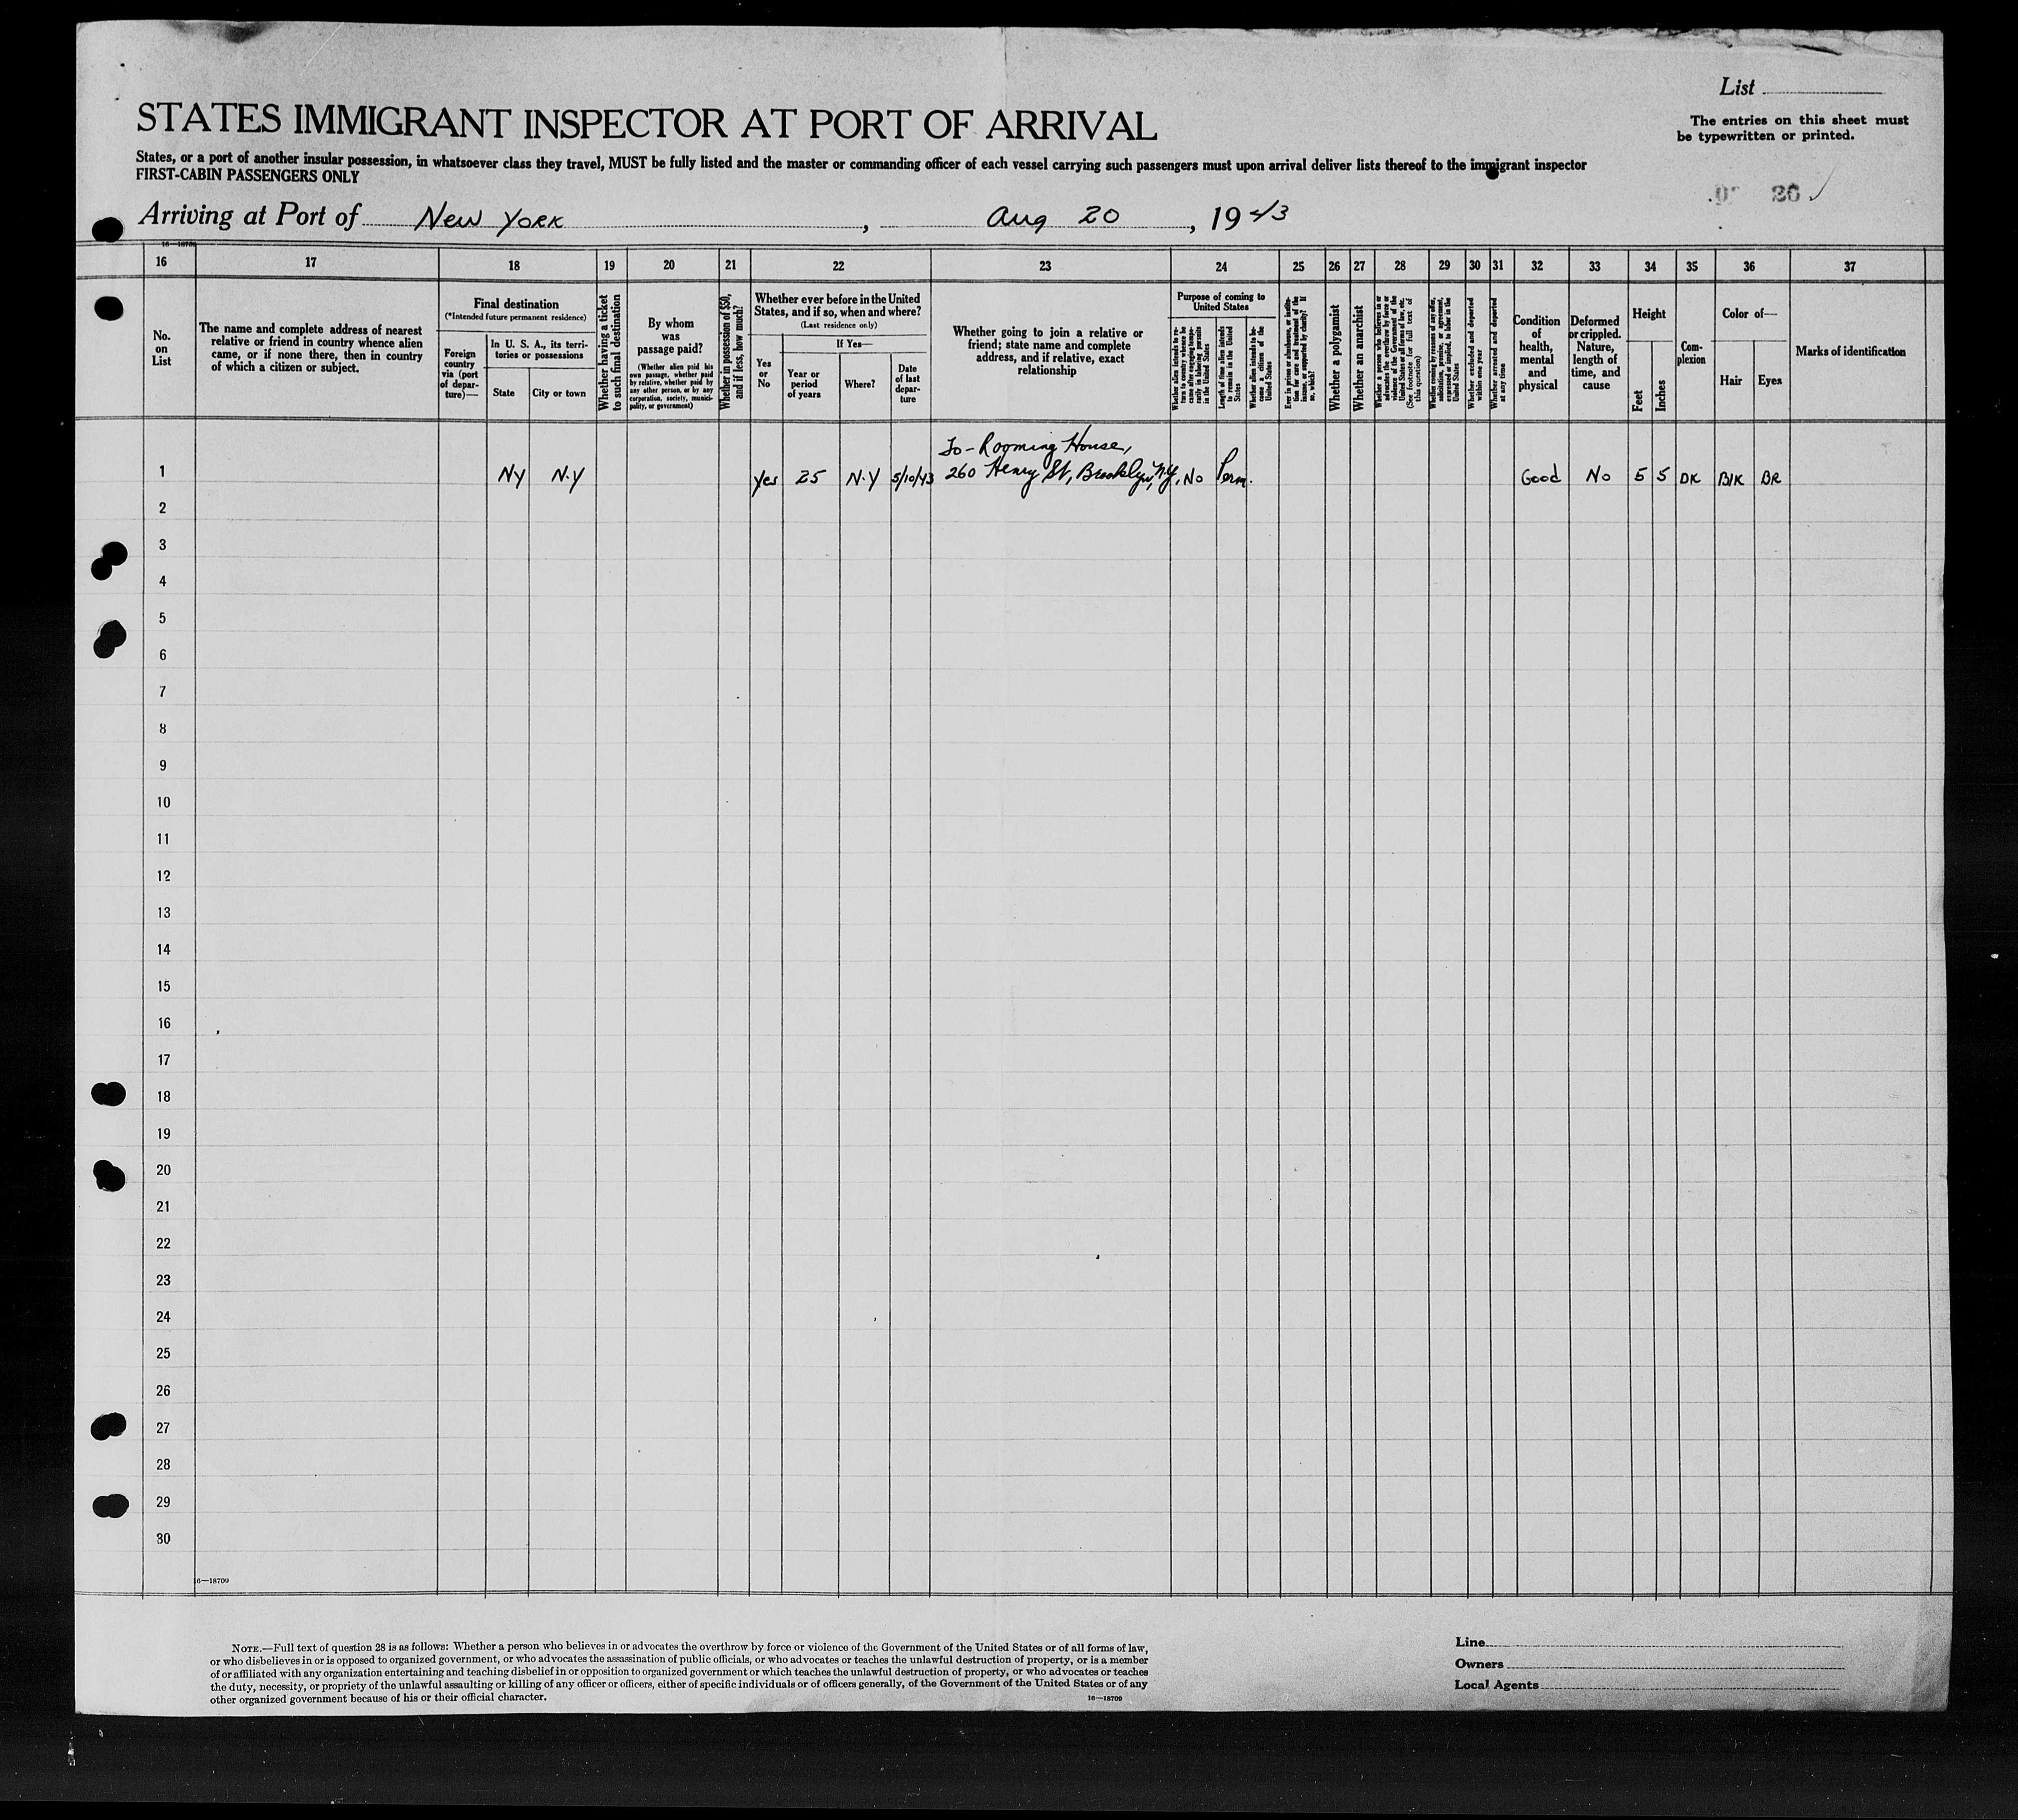 List
The entries on this sheet must
be typewritten or printed.
STATES IMMIGRANT INSPECTOR AT PORT OF ARRIVAL
States, or a port of another insular possession, in whatsoever class they travel, MUST be fully listed and the master or commanding officer of each vessel carrying such passengers must upon arrival deliver lists thereof to the immigrant inspector
FIRST-CABIN PASSENGERS ONLY
Arriving at Port of New York, Aug 20, 1943
16—18709
16 17 18 19 20 21 22 23 24 25 26 27 28 29 30 31 32 33 34 35 36 37
No.
on
List
The name and complete address of nearest
relative or friend in country whence alien
came, or if none there, then in country
of which a citizen or subject.
Final destination
(*Intended future permanent residence)
Foreign
country
via (port
of depar-
ture)—
In U. S. A., its terri-
tories or possessions
State
City or town
Whether having a ticket
to such final destination
By whom
was
passage paid?
(Whether alien paid his
own passage, whether paid
by relative, whether paid by
any other person, or by any
corporation, society, munici-
pality, or government)
Whether in possession of $50,
and if less, how much?
Whether ever before in the United
States, and if so, when and where?
(Last residence only)
Yes
or
No
If Yes—
Year or
period
of years
Where?
Date
of last
depar-
ture
Whether going to join a relative or
friend; state name and complete
address, and if relative, exact
relationship
Purpose of coming to
United States
Whether alien intends to re-
turn to country whence he
came after engaging tempo-
rarily in laboring pursuits
in the United States
Length of time alien intends
to remain in the United
States
Whether alien intends to be-
come a citizen of the
United States
Ever in prison or almshouse, or institu-
tion for care and treatment of the
insane, or supported by charity? If
so, which?
Whether a polygamist
Whether an anarchist
Whether a person who believes in or
advocates the overthrow by force or
violence of the Government of the
United States or all forms of law, etc.
(See footnote for full text of
this question)
Whether coming by reason of any offer,
solicitation, promise, or agreement,
expressed or implied, to labor in the
United States
Whether excluded and deported
within one year
Whether arrested and deported
at any time
Condition
of
health,
mental
and
physical
Deformed
or crippled.
Nature,
length of
time, and
cause
Height
Feet
Inches
Com-
plexion
Color of—
Hair
Eyes
Marks of identification
To- Rooming House,
1 NY N.Y Yes 25 N.Y 5/10/43 260 Henry St, Brooklyn, NY, No Perm. Good No 5 5 DK Blk BR
2
3
4
5
6
7
8
9
10
11
12
13
14
15
16
17
18
19
20
21
22
23
24
25
26
27
28
29
30
16—18709
NOTE.—Full text of question 28 is as follows: Whether a person who believes in or advocates the overthrow by force or violence of the Government of the United States or of all forms of law,
or who disbelieves in or is opposed to organized government, or who advocates the assassination of public officials, or who advocates or teaches the unlawful destruction of property, or is a member
of or affiliated with any organization entertaining and teaching disbelief in or opposition to organized government or which teaches the unlawful destruction of property, or who advocates or teaches
the duty, necessity, or propriety of the unlawful assaulting or killing of any officer or officers, either of specific individuals or of officers generally, of the Government of the United States or of any
other organized government because of his or their official character.
16—18709
Line
Owners
Local Agents